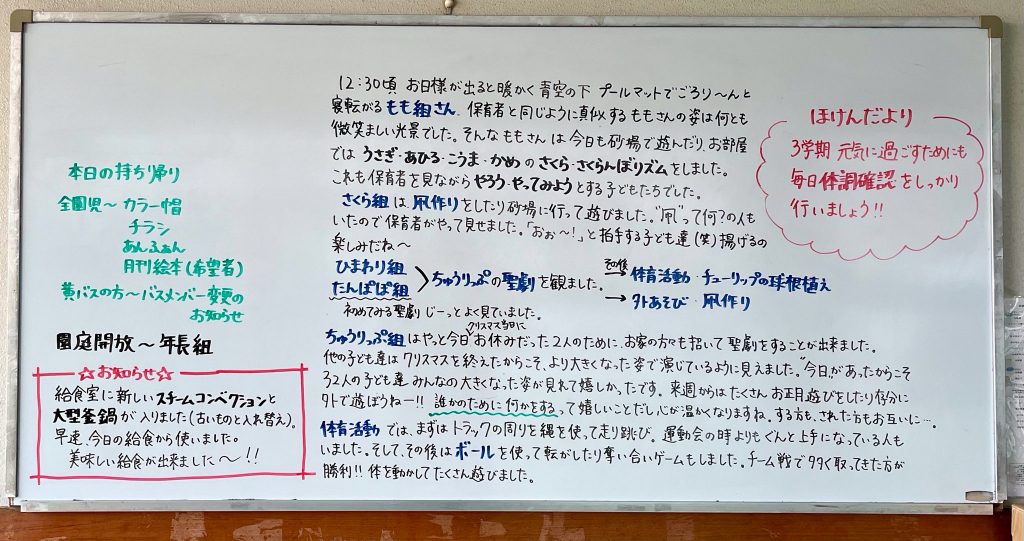 本日の持ち帰り
全園児～カラー帽
チラシ
あんふぁん
月刊絵本(希望者)
黄バスの方～バスメンバー変更の
お知らせ
園庭開放～年長組
☆お知らせ☆
給食室に新しいスチームコンベクションと
大型釜鍋が入りました(古いものと入れ替え)。
早速、今日の給食から使いました。
美味しい給食が出来ました～!!
12:30頃 お日様が出ると暖かく青空の下 プールマットでごろり～んと
寝転がるもも組さん。保育者と同じように真似するももさんの姿は何とも
微笑ましい光景でした。そんなももさんは今日も砂場で遊んだり、お部屋
では うさぎ・あひる・こうま・かめ の さくら・さくらんぼリズムをしました。
これも保育者を見ながら やろう・やってみようとする子どもたちでした。
さくら組は凧作りをしたり砂場に行って遊びました。“凧”って何?の人も
いたので保育者がやって見せました。「おぉ～!」と拍手する子ども達(笑)揚げるの
楽しみだね～
ひまわり組
たんぽぽ組
ちゅうりっぷの聖劇を観ました。
その後
→体育活動・チューリップの球根植え
→外あそび・凧作り
初めてみる聖劇 じーっとよく見ていました。
クリスマス当日に
ちゅうりっぷ組はやっと今日お休みだった2人のために、お家の方々も招いて聖劇をすることが出来ました。
他の子ども達はクリスマスを終えたからこそ、より大きくなった姿で演じているように見えました。“今日”があったからこそ
32人の子ども達みんなの大きくなった姿が見れて嬉しかったです。来週からはたくさんお正月遊びをしたり存分に
外で遊ぼうねー!! 誰かのために何かをするって嬉しいことだし心が温かくなりますね。する方も、された方もお互いに…。
体育活動では、まずはトラックの周りを縄を使って走り跳び。運動会の時よりもぐんと上手になっている人も
いました。そして、その後はボールを使って転がしたり奪い合いゲームもしました。チーム戦で多く取ってきた方が
勝利!! 体を動かしてたくさん遊びました。
ほけんだより
3学期 元気に過ごすためにも
毎日体調確認をしっかり
行いましょう!!